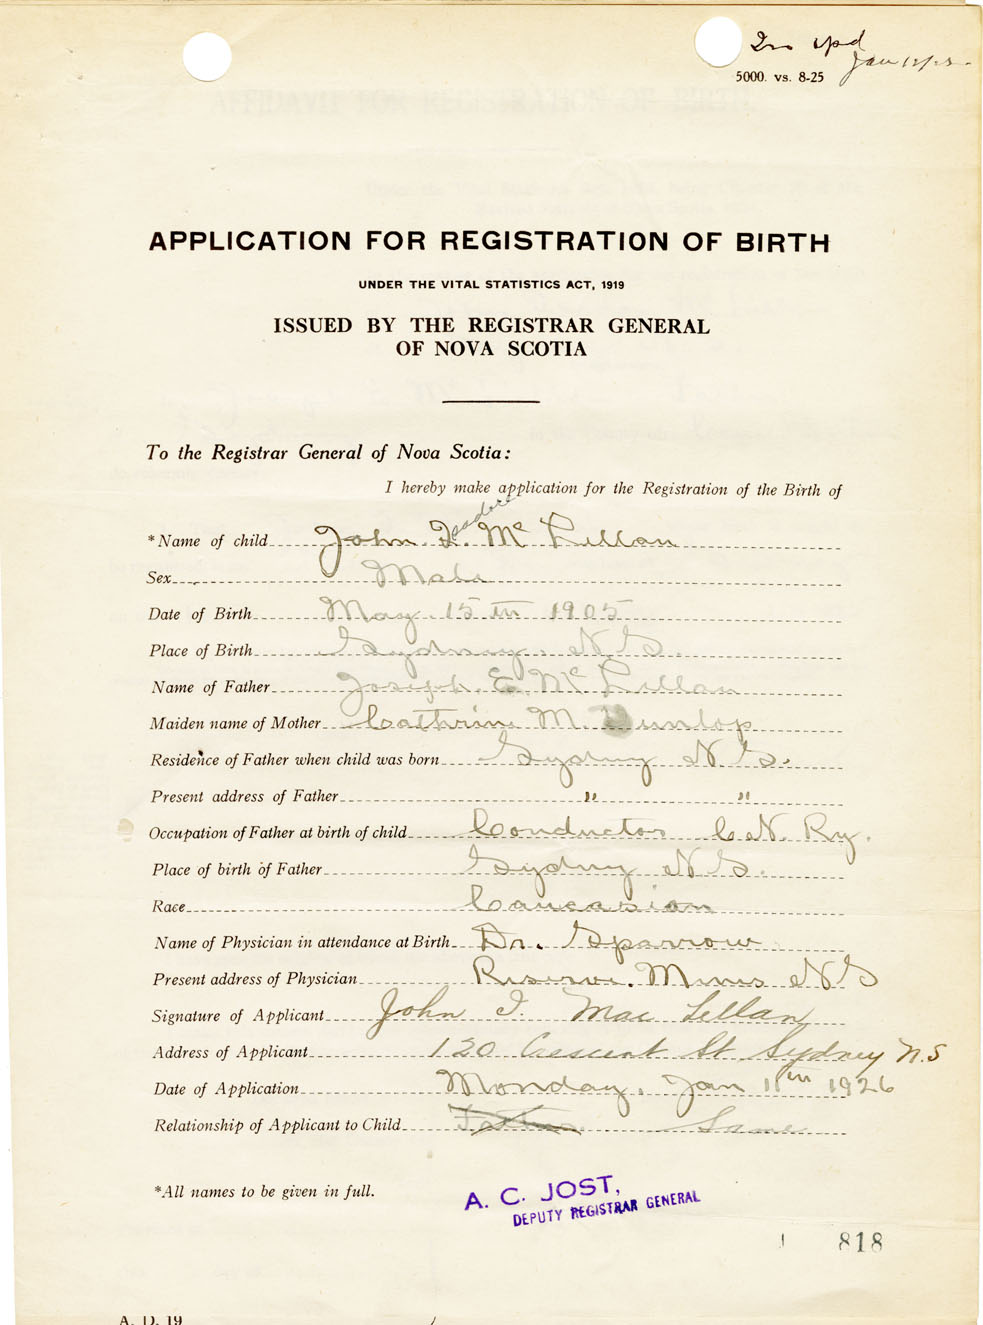 5000. vs. 8-25
APPLICATION FOR REGISTRATION OF BIRTH
UNDER THE VITAL STATISTICS ACT, 1919
ISSUED BY THE REGISTRAR GENERAL
OF NOVA SCOTIA
To the Registrar General of Nova Scotia:
I hereby make application for the Registration of the Birth of
*Name of child John Isadore McLellan
Sex Male
Date of Birth May 15th 1905
Place of Birth Sydney. N.S.
Name of Father Joseph. E. McLellan
Maiden name of Mother Cathrine M. Dunlop
Residence of Father when child was born Sydney N.S.
Present address of Father " "
Occupation of Father at birth of child Conductor C.N. Ry.
Place of birth of Father Sydney N.S.
Race Caucasian
Name of Physician in attendance at Birth Dr. Sparrow
Present address of Physician Reserve. Mines N S
Signature of Applicant John I. MacLellan
Address of Applicant 120 Crescent St Sydney N.S
Date of Application Monday, Jan 11th 1926
Relationship of Applicant to Child Father Same
*All names to be given in full.
A. C. JOST,
DEPUTY REGISTRAR GENERAL
818
A. D. 19